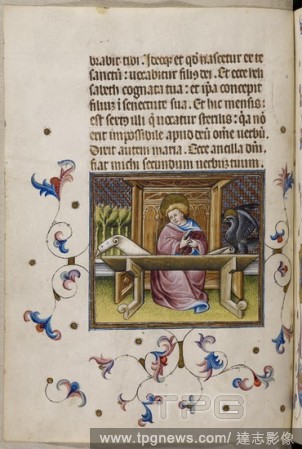 brabit tibi. Ideoqz et qd nascetur ex te
sanctū: vocabitur filius dei. Et ecce heli
sabeth cognata tua: et ipa concepit
filiuz i senectute sua. Et hic mensis:
est sextus illi q̄ vocatur sterilis: q̄a nō
erit impossibile apud deū omē verbū.
Dixit autem maria. Ecce ancilla dnī
fiat michi secundum verbuz tuum.
TPG
www.tpgnews.com/ 達志影像